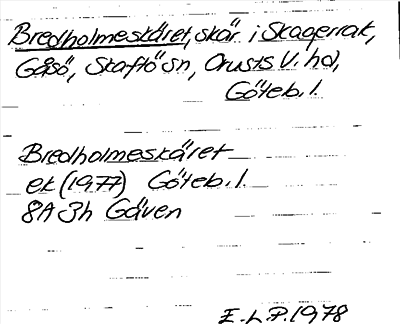 Bredholmeskäret, skär i Skagerrak,
Gåsö, Skaftö sn, Orusts V. hd,
Göteb. l.
Bredholmeskäret
ek (1977) Göteb. l.
8A 3h Gåven
E.L.P. 1978